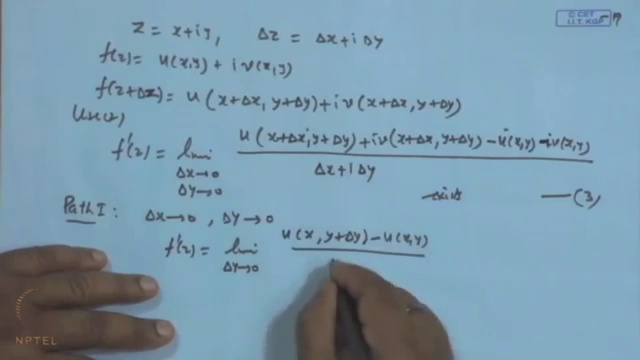 © CET
I.I.T. KGP
z = x+iy, Δz = Δx+iΔy
f(z) = u(x,y) + iv(x,y)
f(z+Δz) = u(x+Δx, y+Δy)+iv(x+Δx, y+Δy)
f'(z) = lim Δx→0 Δy→0 u(x+Δx, y+Δy)+iv(x+Δx, y+Δy) - u(x,y) - iv(x,y)
Δx+iΔy
exists —(3)
Path I: Δx→0, Δy→0
f'(z) = lim Δy→0 u(x, y+Δy) - u(x,y)
NPTEL